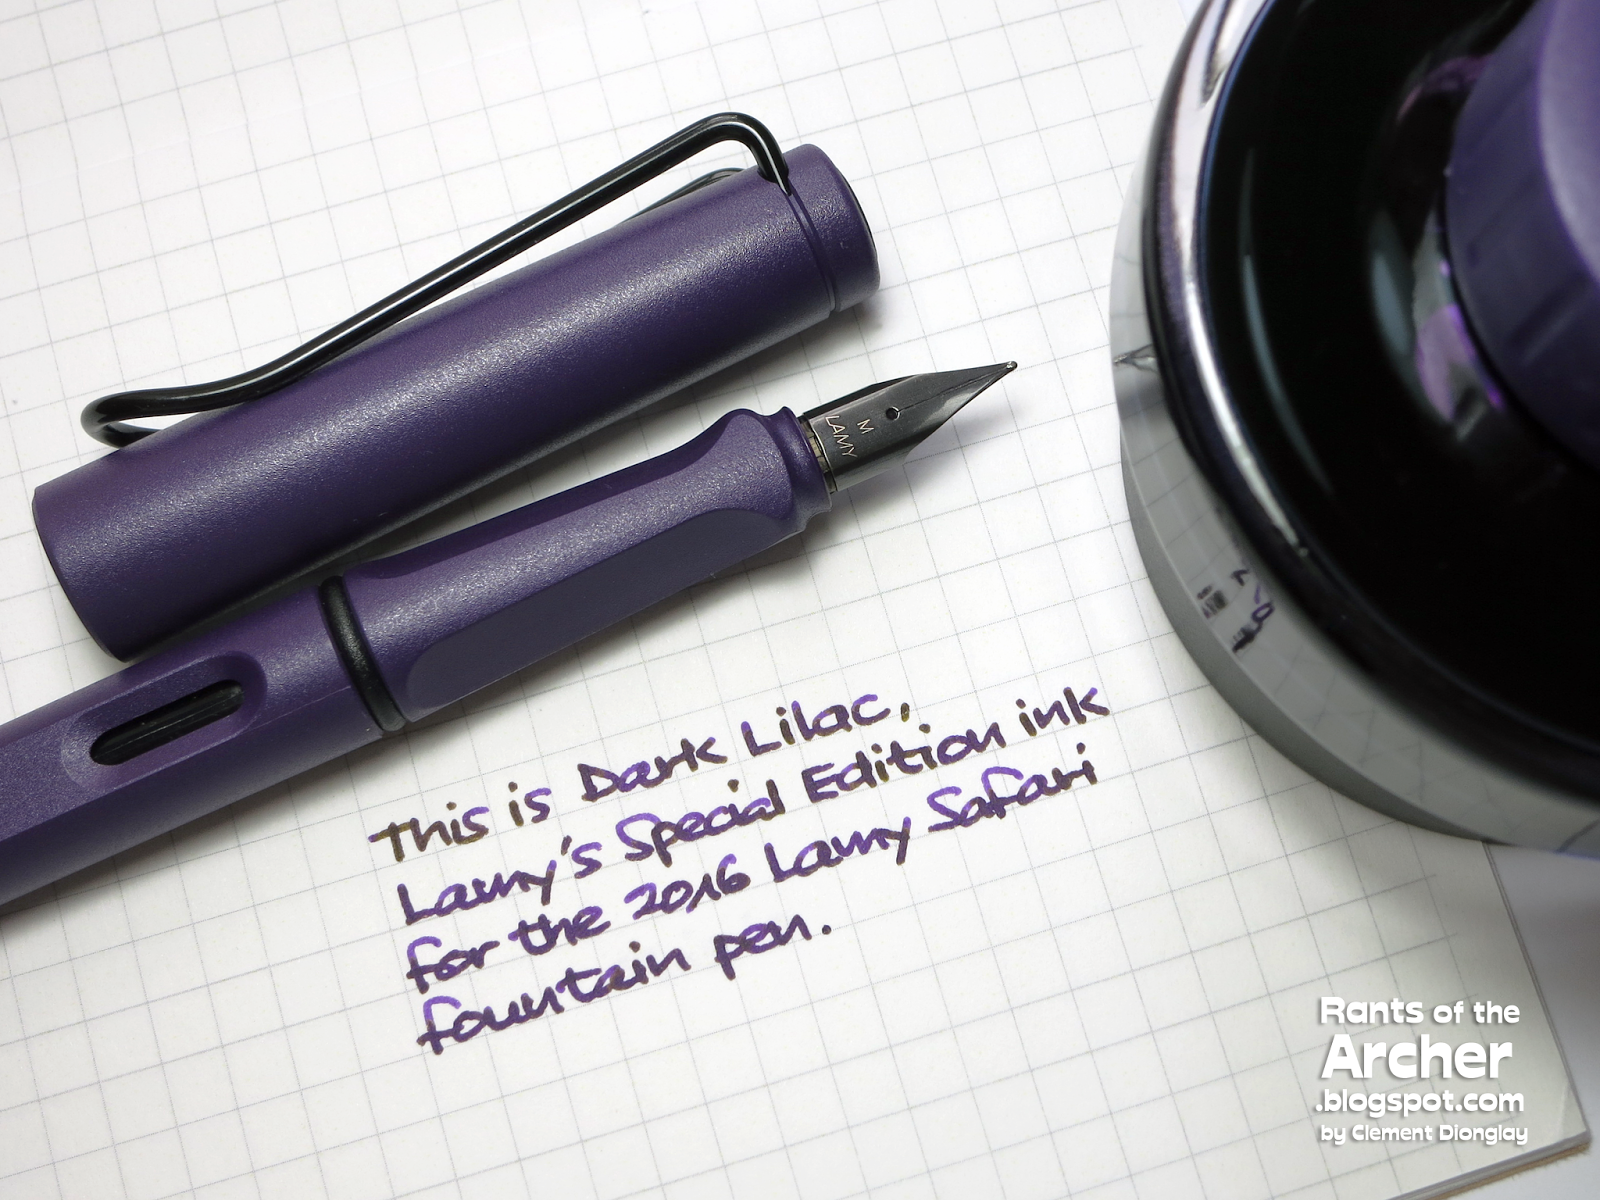 M
LAMY
This is Dark Lilac,
Lamy's Special Edition ink
for the 2016 Lamy Safari
fountain pen.
Rants of the
Archer
.blogspot.com
by Clement Dionglay